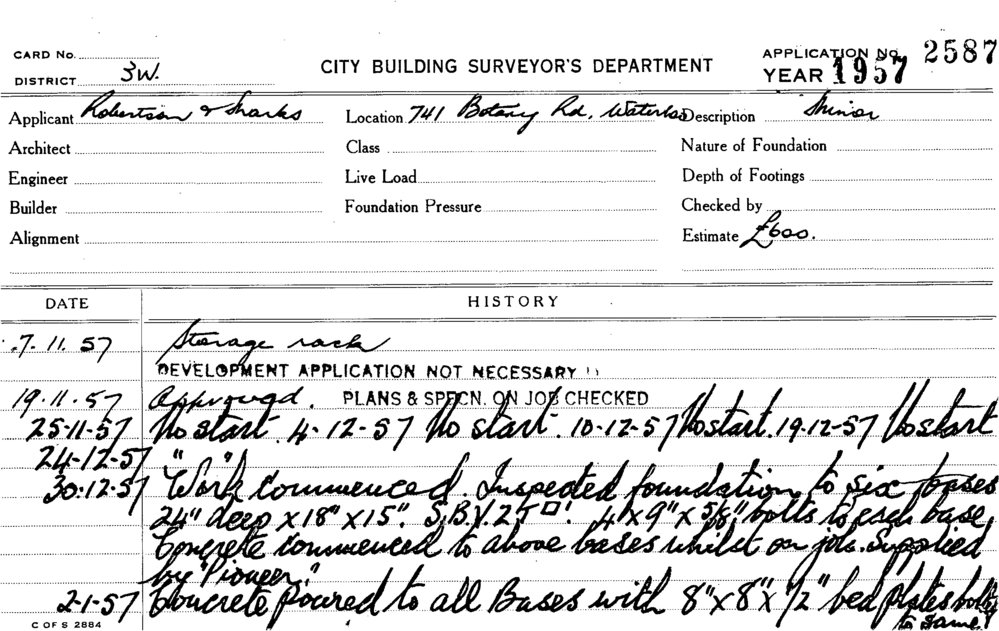 CARD No.
DISTRICT 3W.
CITY BUILDING SURVEYOR'S DEPARTMENT
APPLICATION No. 2587
YEAR 1957
Applicant Robertson & Sharks
Location 741 Botany Rd, Waterloo
Description Minor
Architect
Class
Nature of Foundation
Engineer
Live Load
Depth of Footings
Builder
Foundation Pressure
Checked by
Alignment
Estimate £600.
DATE
HISTORY
7.11.57 Storage rack
DEVELOPMENT APPLICATION NOT NECESSARY
19.11.57 Approved. PLANS & SPECN. ON JOB CHECKED
25-11-57 No start. 4-12-57 No start. 10-12-57 No start. 19-12-57 No start
24-12-57 " "
30.12.57 Work commenced. Inspected foundation to six bases
24" deep x 18" x 15". S.B.V. 2T □'. 4 x 9" x 5/8" bolts to each base
Concrete commenced to above bases whilst on job. Supplied
by "Pioneer."
2-1-57 Concrete poured to all Bases with 8" x 8" x 1/2" bed plates bolted
to same.
C OF S 2884